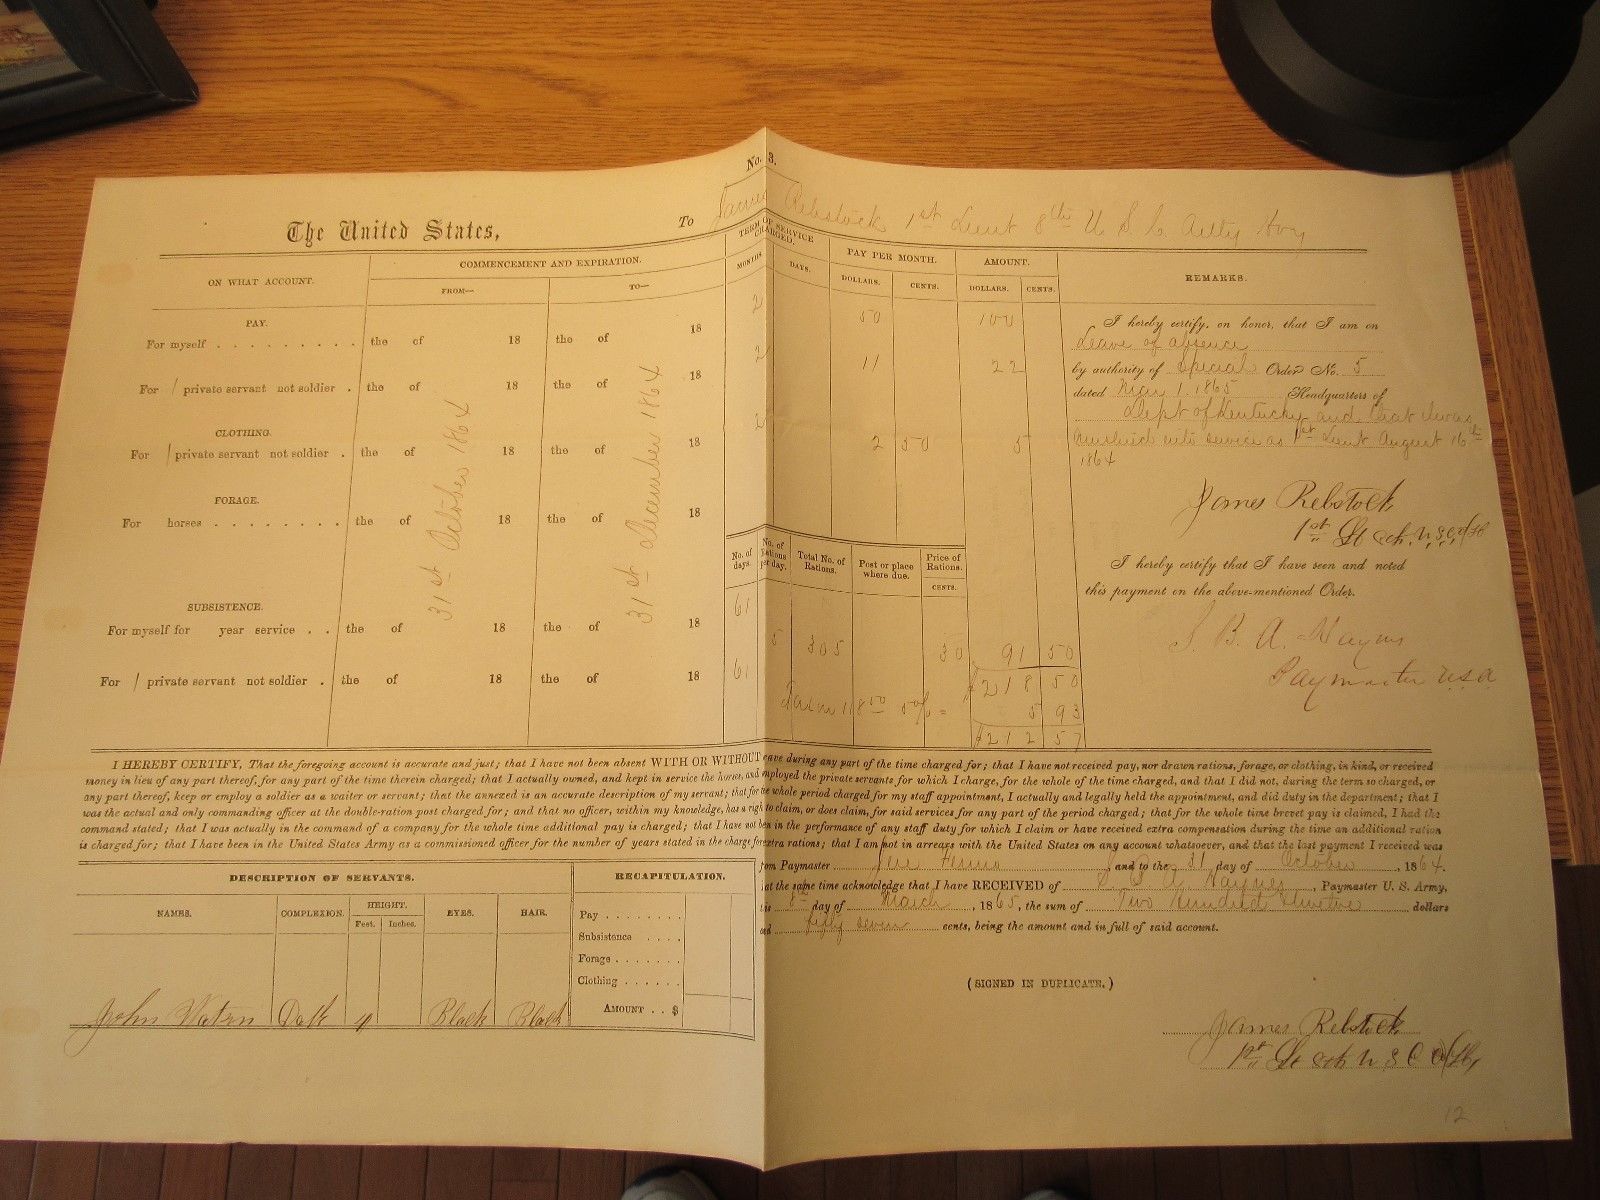 No. 3.
The United States, To James Rebstock 1st Lieut 8th U S C Artty Hvy
ON WHAT ACCOUNT. COMMENCEMENT AND EXPIRATION. TERM OF SERVICE CHARGED. PAY PER MONTH. AMOUNT. REMARKS.
FROM— TO— MONTHS. DAYS. DOLLARS. CENTS. DOLLARS. CENTS.
PAY.
For myself . . . . . . . . . the of 18 the of 18 2 50 100
For 1 private servant not soldier . the of 18 the of 18 2 11 22
CLOTHING.
For 1 private servant not soldier . the of 18 the of 18 2 2 50 5
FORAGE.
For horses . . . . . . . . the of 18 the of 18
31st October 1864
31st December 1864
No. of days. No. of Rations per day. Total No. of Rations. Post or place where due. Price of Rations.
CENTS.
SUBSISTENCE.
For myself for year service . . the of 18 the of 18 61 5 305 30 91 50
For 1 private servant not soldier . the of 18 the of 18 61
$218 50
118 50 5% = 5 93
$212 57
I hereby certify, on honor, that I am on
Leave of absence
by authority of Special Order No. 5
dated Mar 1. 1865 Headquarters of
Dept of Kentucky and that I was
mustered into service as 1st Lieut August 16th
1864
James Rebstock
1st Lt 8th U.S.C.A
I hereby certify that I have seen and noted
this payment on the above-mentioned Order.
Paymaster USA
I HEREBY CERTIFY, That the foregoing account is accurate and just; that I have not been absent WITH OR WITHOUT leave during any part of the time charged for; that I have not received pay, nor drawn rations, forage, or clothing, in kind, or received
money in lieu of any part thereof, for any part of the time therein charged; that I actually owned, and kept in service the horses, and employed the private servants for which I charge, for the whole of the time charged, and that I did not, during the term so charged, or
any part thereof, keep or employ a soldier as a waiter or servant; that the annexed is an accurate description of my servant; that for the whole period charged for my staff appointment, I actually and legally held the appointment, and did duty in the department; that I
was the actual and only commanding officer at the double-ration post charged for; and that no officer, within my knowledge, has a right to claim, or does claim, for said services for any part of the period charged; that for the whole time brevet pay is claimed, I had the
command stated; that I was actually in the command of a company for the whole time additional pay is charged; that I have not been in the performance of any staff duty for which I claim or have received extra compensation during the time an additional ration
is charged for; that I have been in the United States Army as a commissioned officer for the number of years stated in the charge for extra rations; that I am not in arrears with the United States on any account whatsoever, and that the last payment I received was
from Paymaster , and to the 31 day of October , 1864.
at the same time acknowledge that I have RECEIVED of , Paymaster U. S. Army,
this 8th day of March , 1865, the sum of Two Hundred & Twelve dollars
and fifty seven cents, being the amount and in full of said account.
DESCRIPTION OF SERVANTS.
NAMES. COMPLEXION. HEIGHT. EYES. HAIR.
Feet. Inches.
John Watson Dark Black Black
RECAPITULATION.
Pay . . . . . . . .
Subsistence . . . .
Forage . . . . . . .
Clothing . . . . . .
AMOUNT . . $
(SIGNED IN DUPLICATE.)
James Rebstock
1st Lt 8th U S C A
12